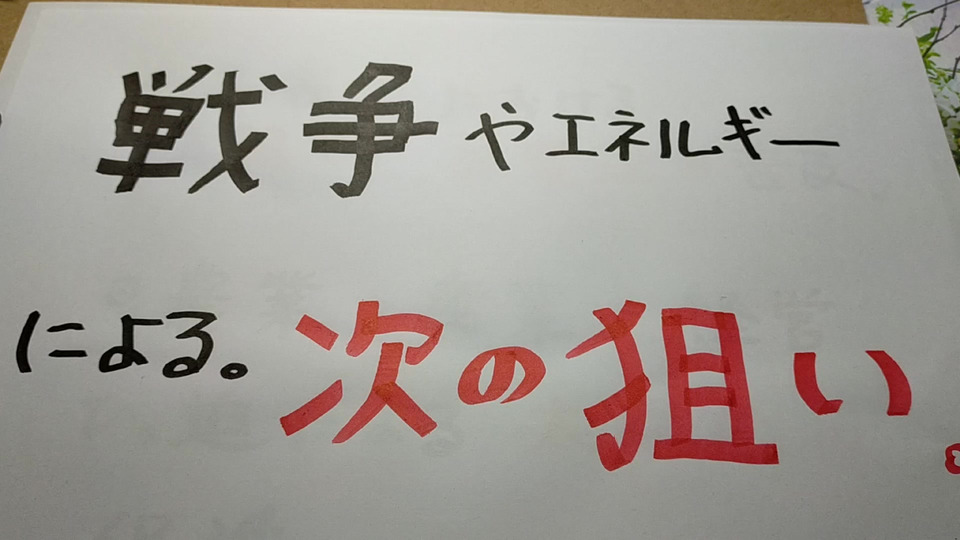 戦争やエネルギー
による。次の狙い